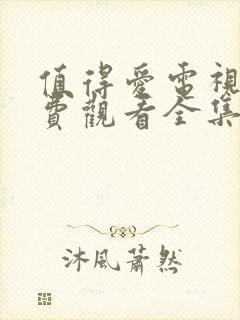 值得愛電視
費觀看全集
沐風蕭然